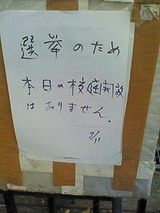 選挙のため
本日の校庭開放
はありません。
7/11